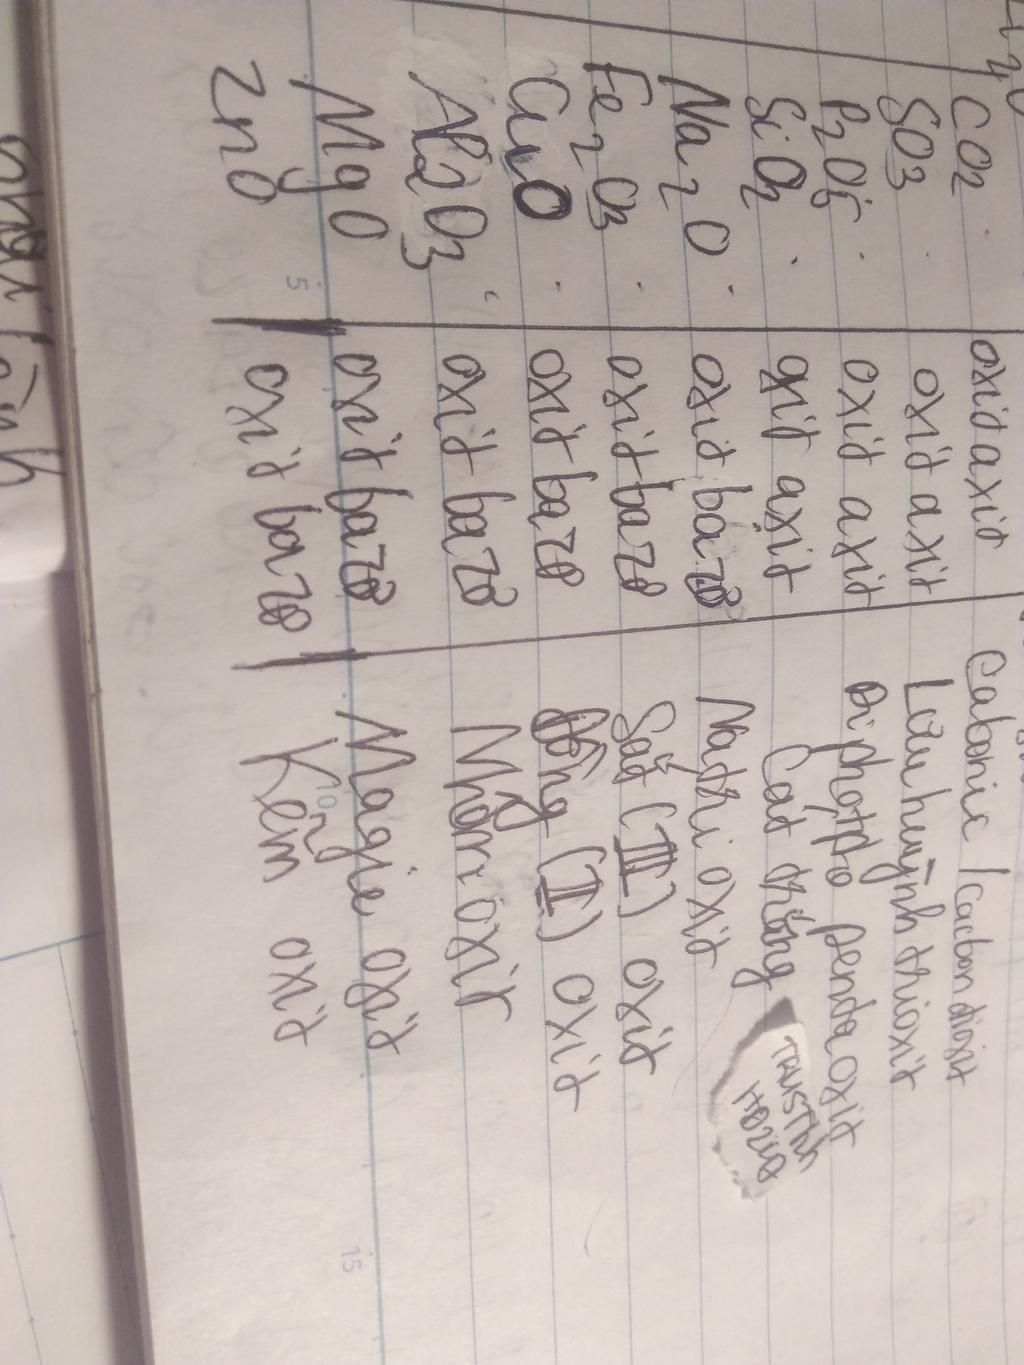 CO2 oxid axit Cabonic / cacbon dioxit
SO3 oxid axit Lưu huỳnh trioxit
P2O5 oxid axit Đi photpho pentaoxit
SiO2 oxit axit Cát trắng
Na2O oxid bazơ Natri oxit
Fe2O3 oxit bazơ Sắt (III) oxit
CuO oxit bazơ Đồng (II) oxit
Al2O3 oxit bazơ Nhôm oxit
MgO oxit bazơ Magie oxit
ZnO oxit bazơ Kẽm oxit
5
10
15